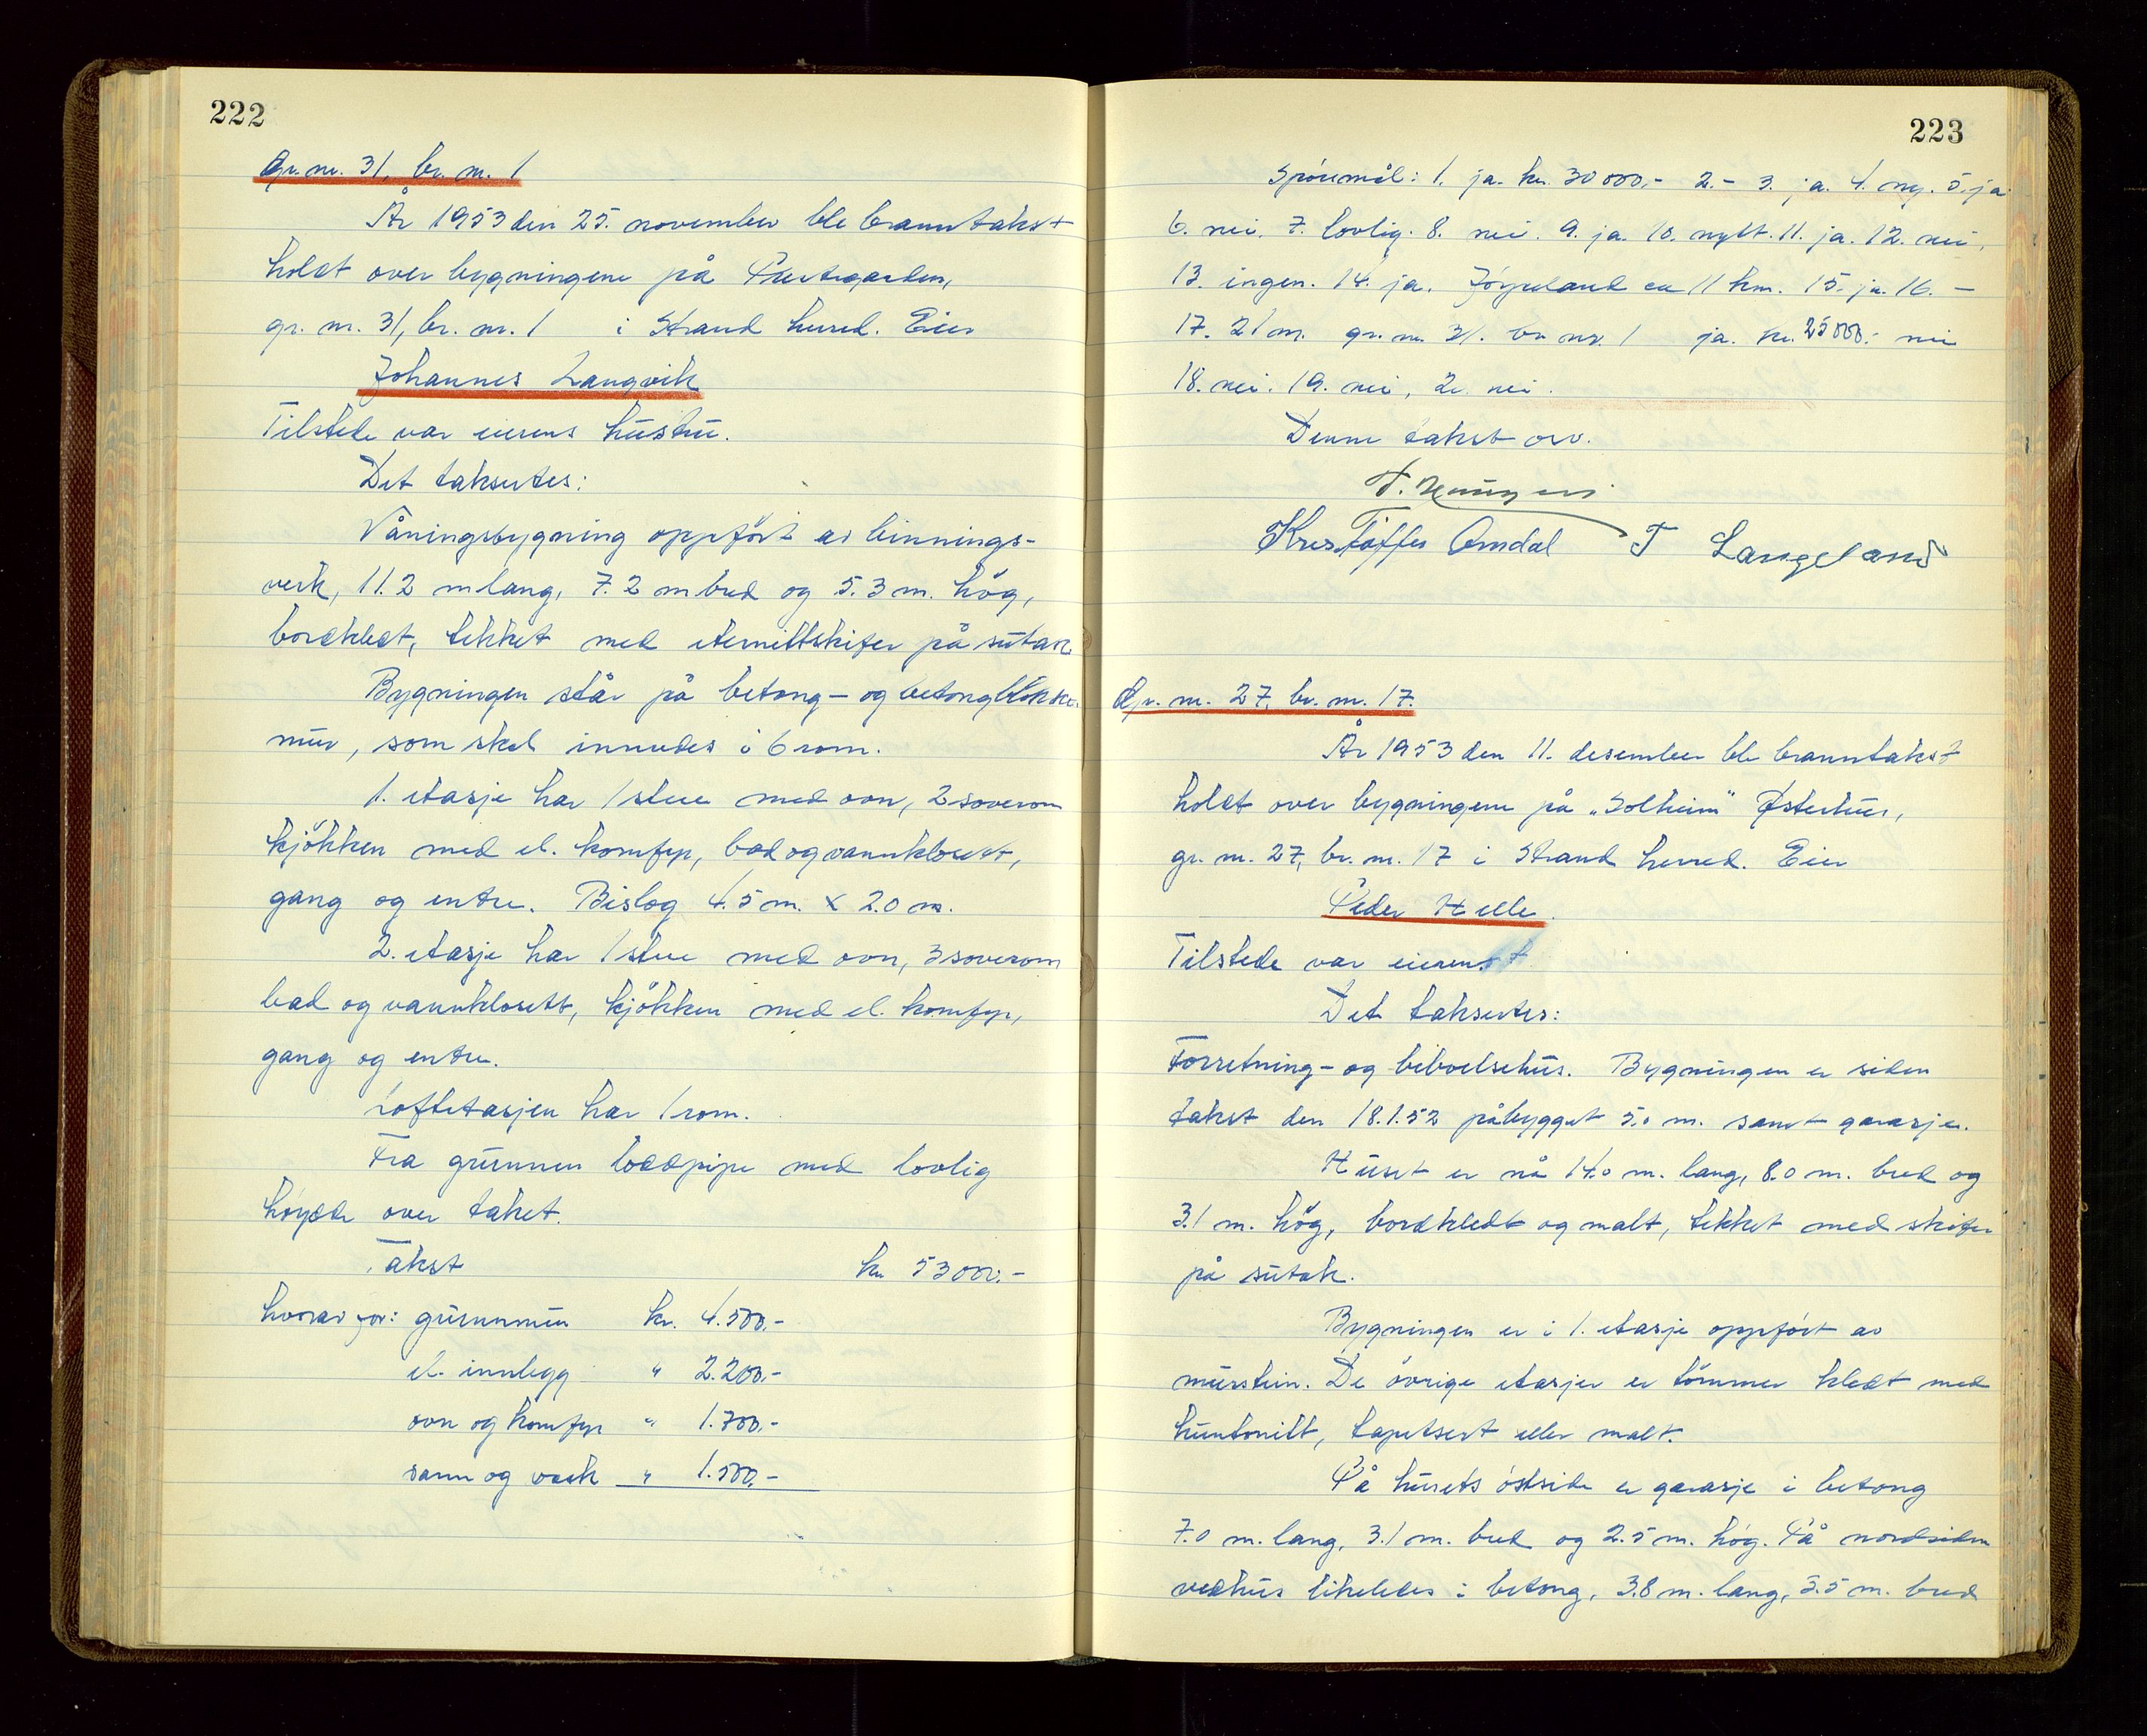 222
Gr. nr. 31, br. nr. 1
År 1953 den 25. november ble branntakst
holdt over bygningene på Prestegarden,
gr. nr. 31, br. nr. 1 i Strand herred. Eier
Johannes Langvik
Tilstede var eierens hustru.
Det takseres:
Våningsbygning oppført av binnings-
verk, 11.2 m lang, 7.2 m bred og 5.3 m. høg,
bordkledt, tekket med eternittskifer på sutak.
Bygningen står på betong- og betongblokk
mur, som skal innredes i 6 rom.
1. etasje har 1 stue med ovn, 2 soverom
kjøkken med el. komfyr, bad og vannklosett,
gang og entre. Bislag 4.5 m. x 2.0 m.
2. etasje har 1 stue med ovn, 3 soverom
bad og vannklosett, kjøkken med el. komfyr,
gang og entre.
Loftetasjen har 1 rom.
Fra grunnen loddpipe med lovlig
høyde over taket.
Takst kr 53000.-
hvorav for: grunnmur kr. 4.500.-
el. innlegg " 2.200.-
ovn og komfyr " 1.700.-
vann og vask " 1.500.-
223
Spørsmål: 1. ja. kr. 30000.- 2.- 3. ja. 4. ny. 5. ja
6. nei. 7. lovlig. 8. nei. 9. ja. 10. nytt. 11. ja. 12. nei,
13. ingen. 14. ja. Jørpeland ca 11 km. 15. ja. 16. -
17. 21 m. gr. nr. 31. br nr. 1 ja. kr. 25000.- nei
18. nei. 19. nei, 20. nei.
Denne takst osv.
Kristoffer Amdal T Langeland
Gr. nr. 27, br. nr. 17.
År 1953 den 11. desember ble branntakst
holdt over bygningene på "Solheim" Østerhus,
gr. nr. 27, br. nr. 17 i Strand herred. Eier
Peder Helle.
Tilstede var eieren
Det takseres:
Forretning- og beboelsehus. Bygningen er siden
takst den 18.1.52 påbygget 5.0 m. samt garasje.
Huset er nå 14.0 m. lang, 8.0 m. bred og
3.1 m. høg, bordkledt og malt, tekket med skifer
på sutak.
Bygningen er i 1. etasje oppført av
murstein. De øvrige etasjer er tømmer kledt med
huntonitt, tapetsert eller malt.
På husets østside er garasje i betong
7.0 m. lang, 3.1 m. bred og 2.5 m. høg. På nordsiden
vedhus likeledes i betong, 3.8 m. lang, 3.5 m. bred